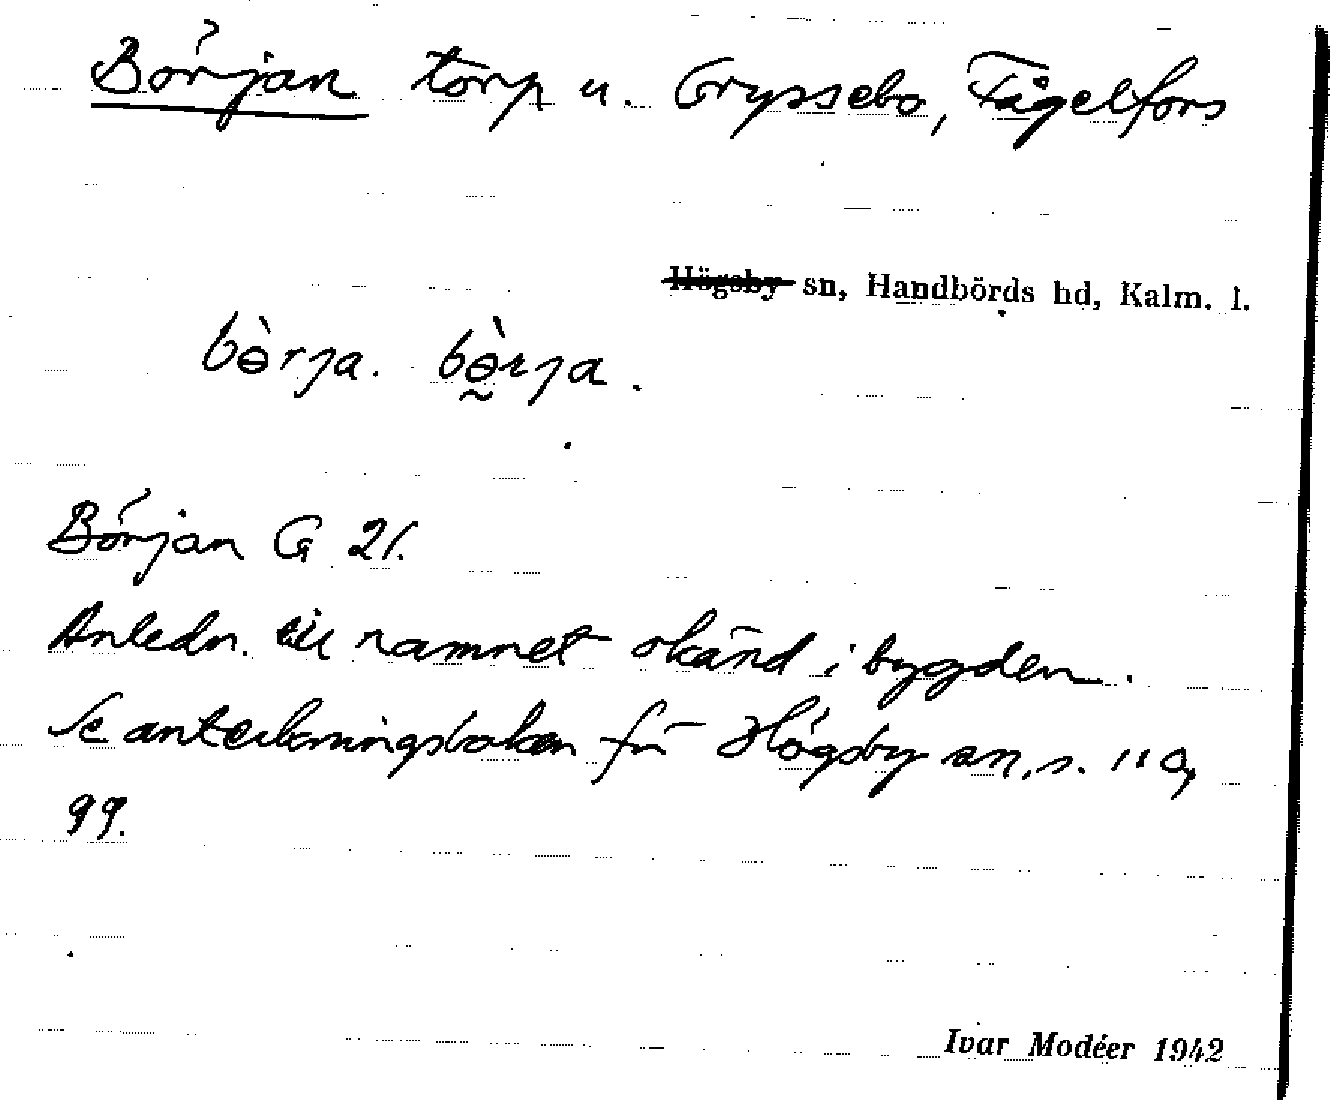 Början torp u. Gryssebo, Fågelfors
Högsby sn, Handbörds hd, Kalm. l.
bɵ̀rja. bɵ̰̀rja.
Början G 21.
Anledn. till namnet okänd i bygden.
Se anteckningsboken för Högsby sn, s. 110,
99.
Ivar Modéer 1942